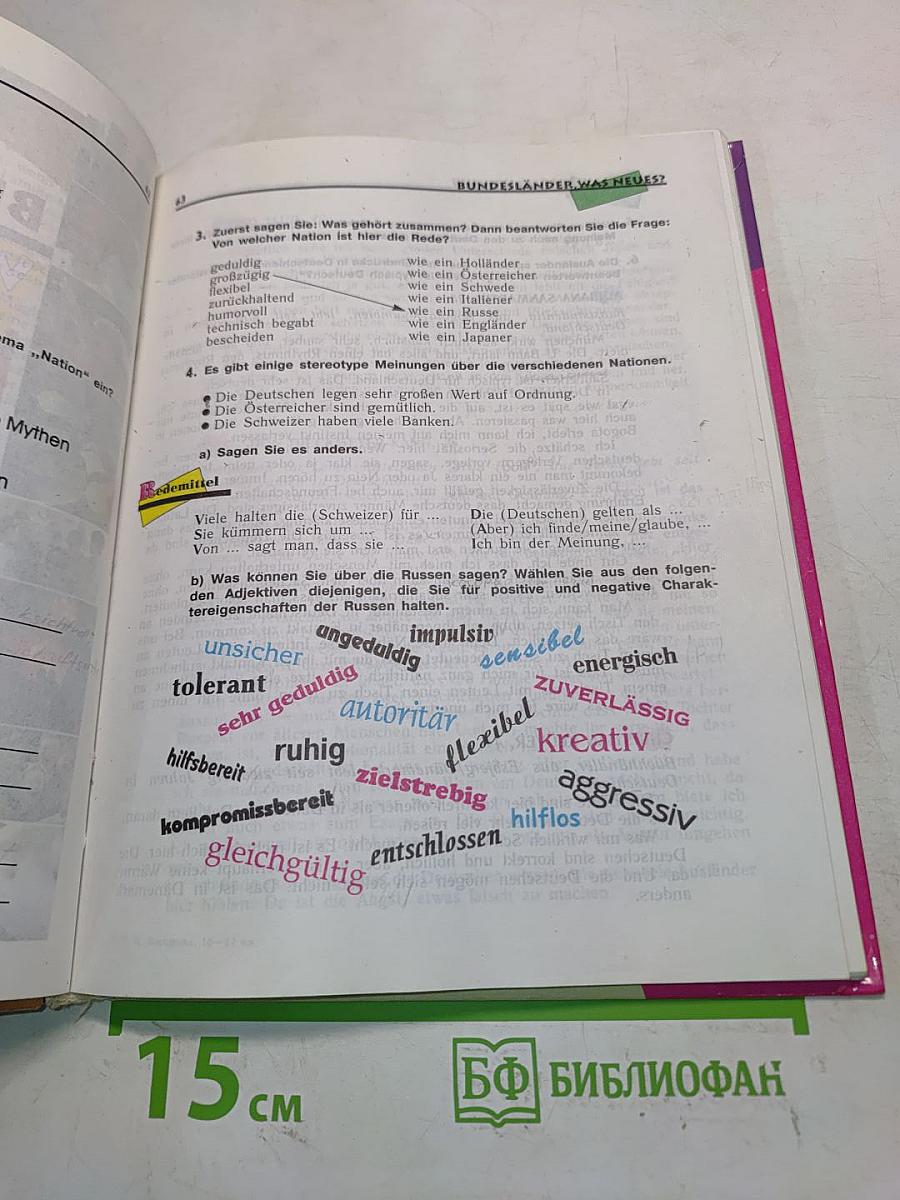 ma „Nation“ ein?
Mythen
n
63
BUNDESLÄNDER, WAS NEUES?
3. Zuerst sagen Sie: Was gehört zusammen? Dann beantworten Sie die Frage:
Von welcher Nation ist hier die Rede?
geduldig wie ein Holländer
großzügig wie ein Österreicher
flexibel wie ein Schwede
zurückhaltend wie ein Italiener
humorvoll wie ein Russe
technisch begabt wie ein Engländer
bescheiden wie ein Japaner
4. Es gibt einige stereotype Meinungen über die verschiedenen Nationen.
● Die Deutschen legen sehr großen Wert auf Ordnung.
● Die Österreicher sind gemütlich.
● Die Schweizer haben viele Banken.
a) Sagen Sie es anders.
Redemittel
Viele halten die (Schweizer) für ... Die (Deutschen) gelten als ...
Sie kümmern sich um ... (Aber) ich finde/meine/glaube, ...
Von ... sagt man, dass sie ... Ich bin der Meinung, ...
b) Was können Sie über die Russen sagen? Wählen Sie aus den folgen-
den Adjektiven diejenigen, die Sie für positive und negative Charak-
tereigenschaften der Russen halten.
unsicher
ungeduldig
impulsiv
sensibel
energisch
tolerant
sehr geduldig
autoritär
flexibel
ZUVERLÄSSIG
hilfsbereit
ruhig
zielstrebig
kreativ
aggressiv
kompromissbereit
hilflos
gleichgültig
entschlossen
15 см
БФ БИБЛИОФАН